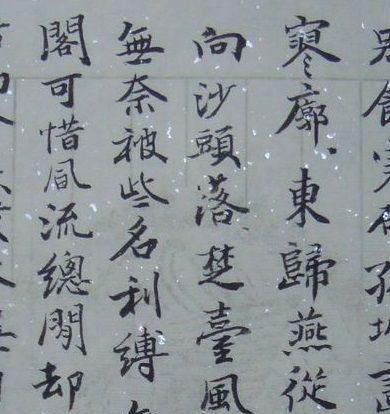 館孤城
寥廓東歸燕從
向沙頭落楚臺風
無奈被些名利縛
閣可惜風流總閒却